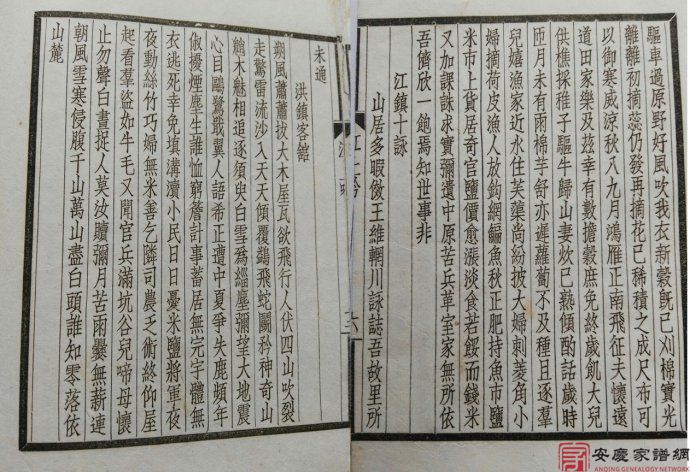 驅車過原野好風吹我衣新穀旣已刈棉實光
離離初摘蕊仍發再摘花已稀積之成尺布可
以御寒威涼秋八九月鴻雁正南飛征夫懷遠
道田家樂及茲幸有數擔穀庶免終歲飢大兒
供樵採稚子驅牛歸山妻炊已熟傾酌話歲時
匝月未有雨棉芋舒亦遲蘿蔔不及種且逐羣
兒嬉漁家近水住芙蕖尚紛披大婦刺菱角小
婦摘荷皮漁人放鉤網鯿魚秋正肥持魚市鹽
米市上貨居奇官鹽價愈漲淡食若餒而錢米
又加課誅求實彌遺中原苦兵革室家無所依
吾儕欣一飽焉知世事非
江鎮十詠
山居多暇倣王維輞川詠誌吾故里所
未逋
洪鎮客館
朔風蕭蕭拔大木屋瓦欲飛行人伏四山吹裂
走驚雷流沙入天天傾覆鵠飛蛇鬭矜神奇山
魈木魅相追逐須臾白雪爲緇塵彌望大地震
心目鷗鷺戢翼人語希正遭中夏爭失鹿頻年
俶擾煙塵生誰恤窮簷計事蓄居無完宇體無
衣逃死幸免塡溝瀆小民日日憂米鹽將軍夜
夜動絲竹巧婦無米善乞隣司農乏術終仰屋
起看羣盜如牛毛又聞官兵滿坑谷兒啼母懷
止勿聲白晝捉人莫汝贖彌月苦雨爨無薪連
朝風雪寒侵腹千山萬山盡白頭誰知零落依
山麓
安慶家譜網
ANQING GENEALOGY NETWORK